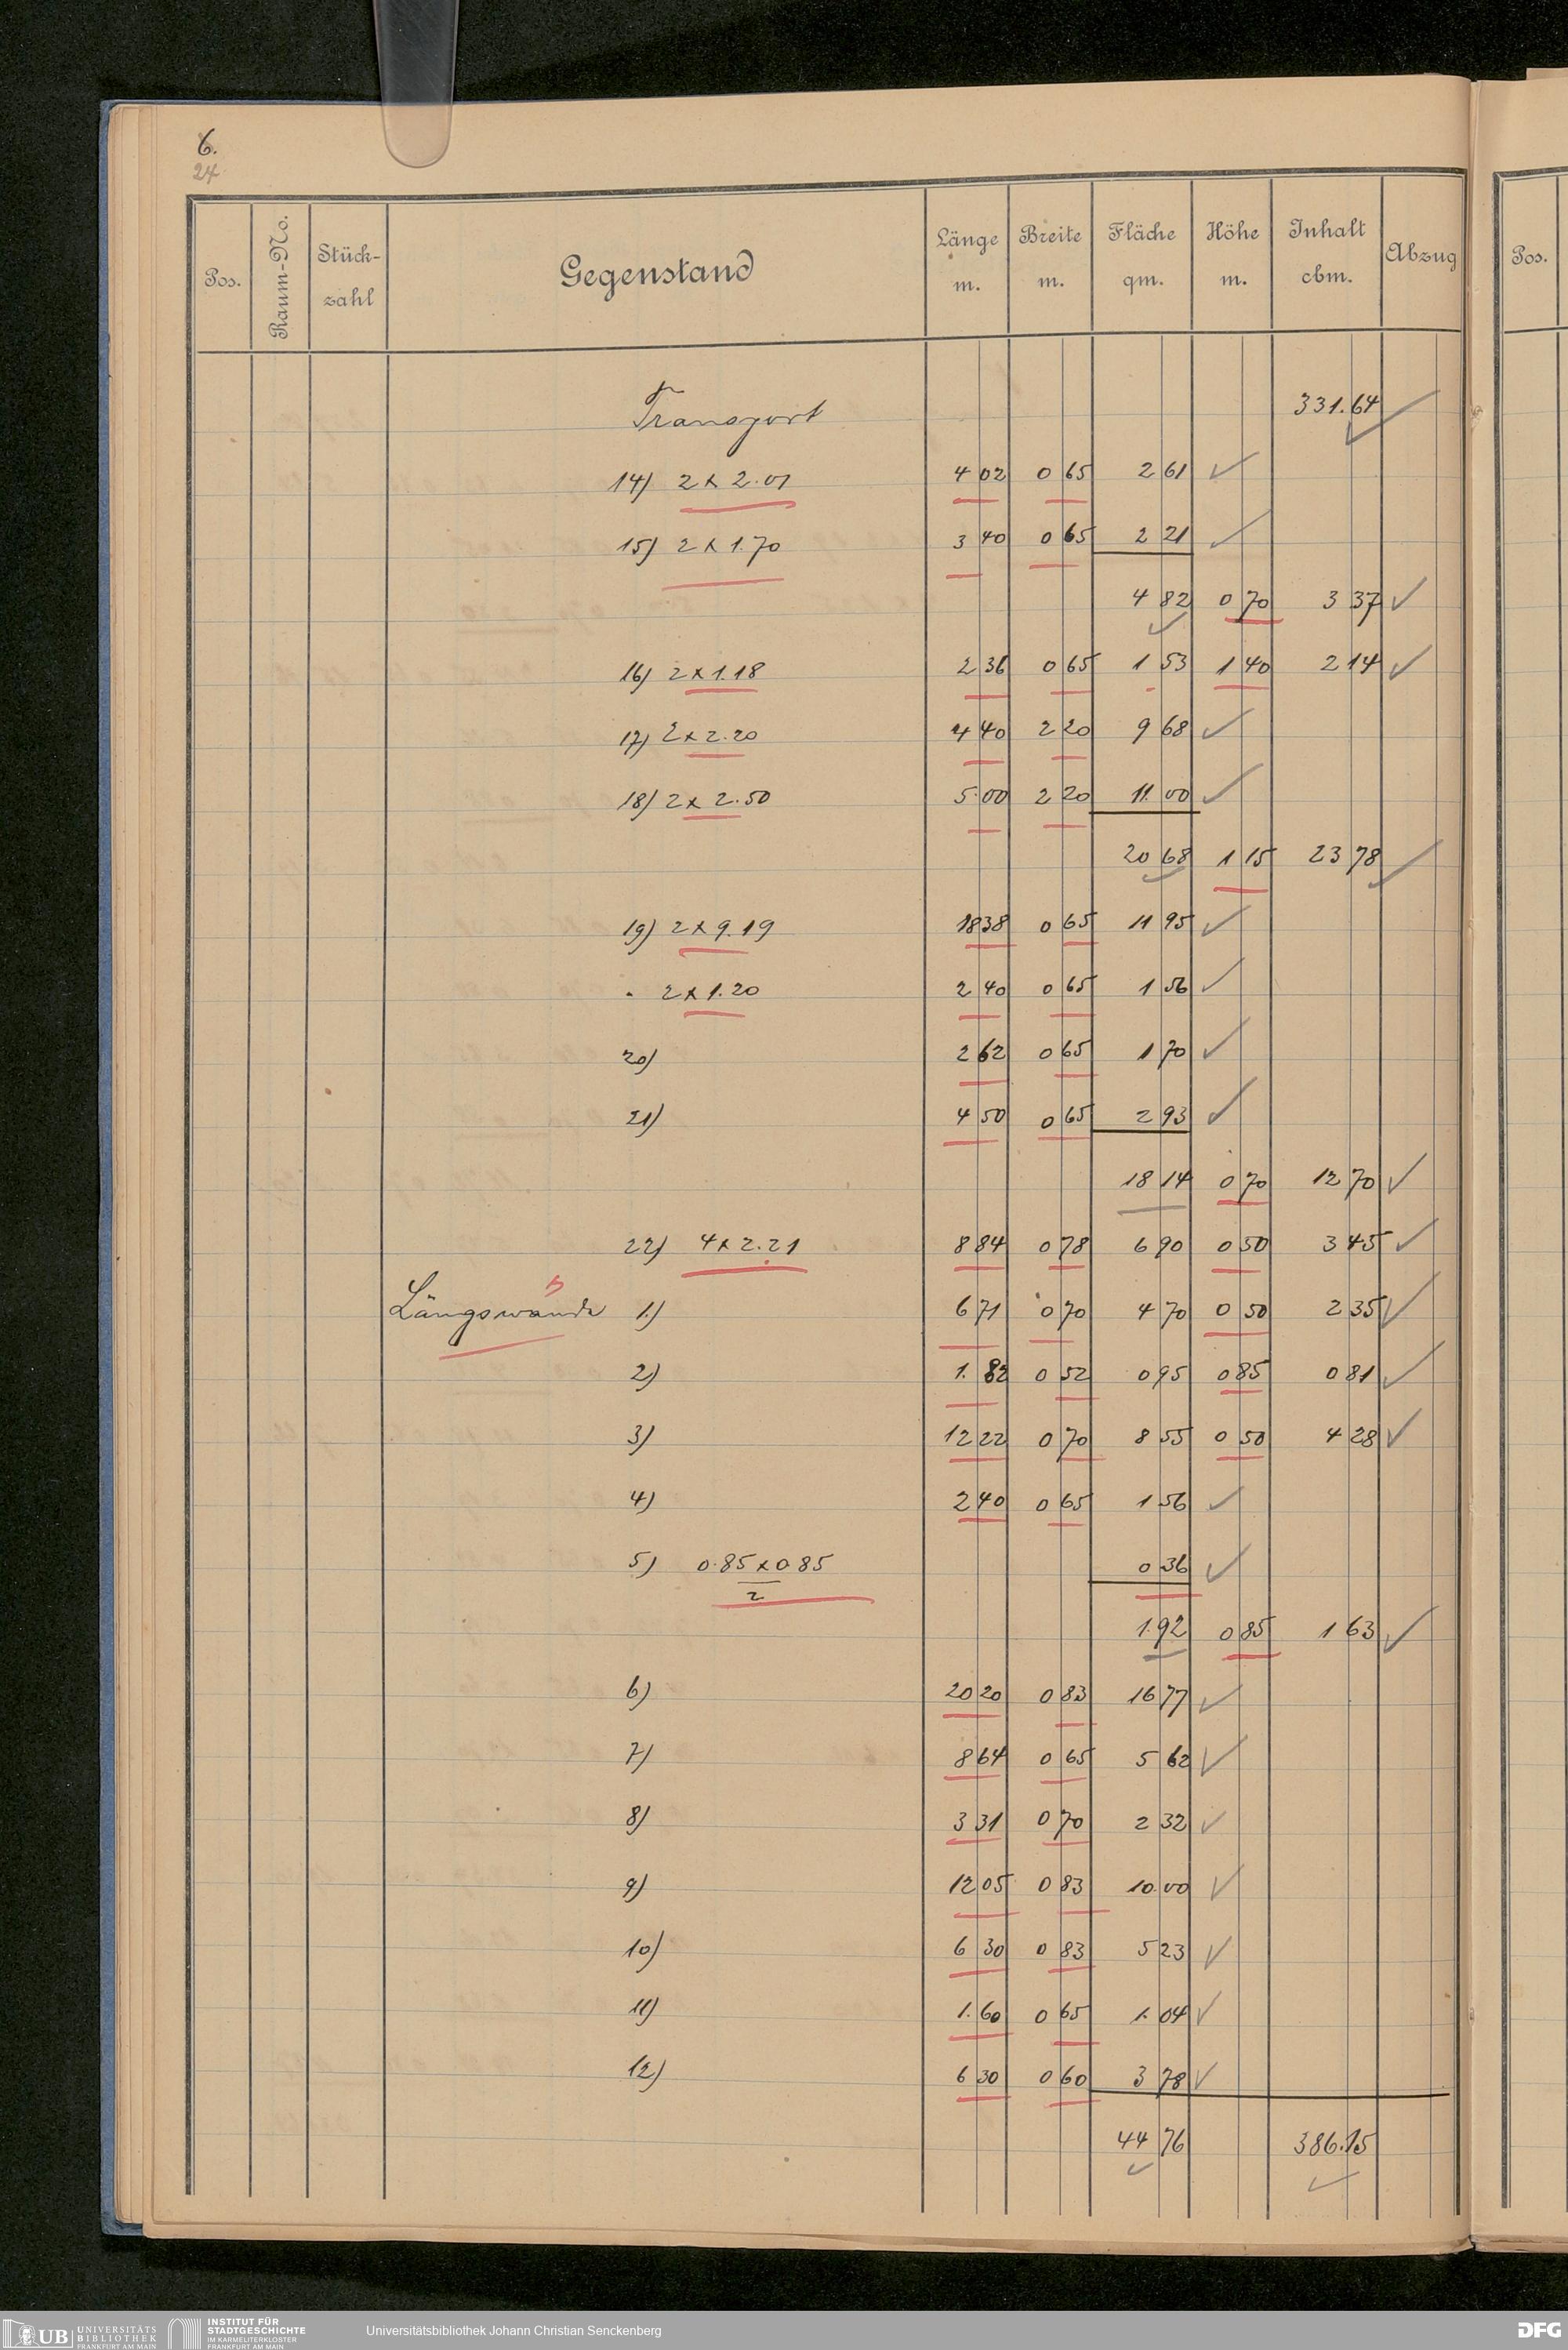 6.
24
Pos. Raum-No. Stück-zahl Gegenstand Länge m. Breite m. Fläche qm. Höhe m. Inhalt cbm. Abzug Pos.
Transport 331.64
14) 2 x 2.01 4 02 0 65 2 61
15) 2 x 1.70 3 40 0 65 2 21
4 82 0 70 3 37
16) 2 x 1.18 2 36 0 65 1 53 1 40 2 14
17) 2 x 2.20 4 40 2 20 9 68
18) 2 x 2.50 5.00 2 20 11.00
20 68 1 15 23 78
19) 2 x 9.19 18 38 0 65 11 95
" 2 x 1.20 2 40 0 65 1 56
20) 2 62 0 65 1 70
21) 4 50 0 65 2 93
18 14 0 70 12 70
22) 4 x 2.21 8 84 0 78 6 90 0 50 3 45
Längswände 1.) 6 71 0 70 4 70 0 50 2 35
2) 1. 82 0 52 0 95 0 85 0 81
3) 12 22 0 70 8 55 0 50 4 28
4) 2 40 0 65 1 56
5) 0.85 x 0.85 0 36
2
1.92 0 85 1 63
6) 20 20 0 83 16 77
7) 8 64 0 65 5 62
8) 3 31 0 70 2 32
9) 12 05 0 83 10.00
10) 6 30 0 83 5 23
11) 1.60 0 65 1.04
12) 6 30 0 60 3 78
44 76 386.15
UB UNIVERSITÄTS BIBLIOTHEK FRANKFURT AM MAIN
INSTITUT FÜR STADTGESCHICHTE IM KARMELITERKLOSTER FRANKFURT AM MAIN
Universitätsbibliothek Johann Christian Senckenberg
DFG